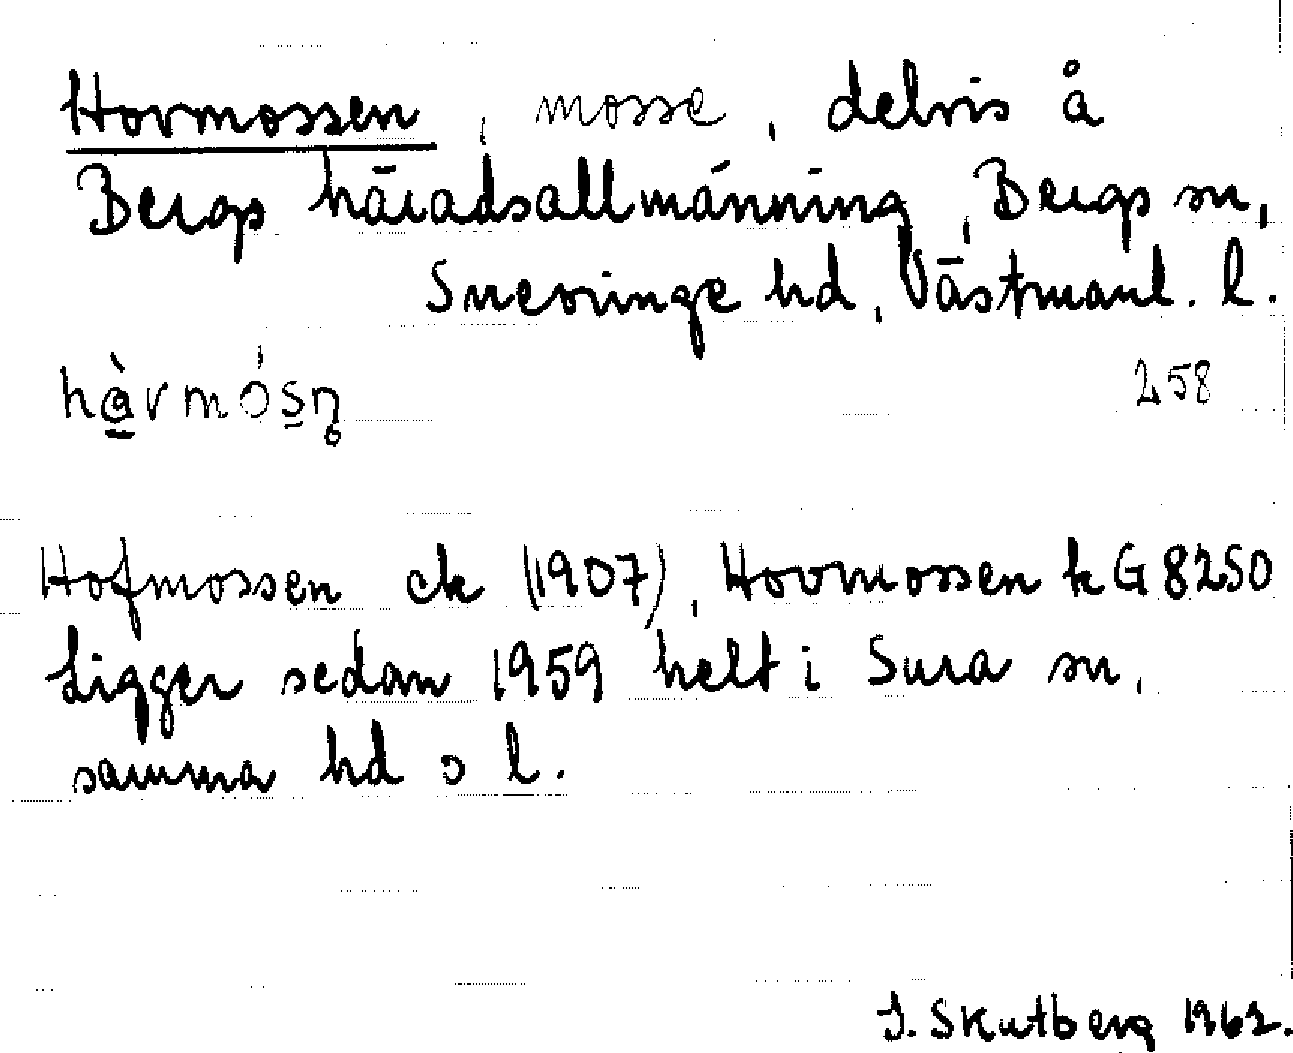 Hovmossen, mosse, delvis å
Bergs häradsallmänning, Bergs sn,
Snevringe hd, Västmanl. l.
hàvmós̲n̥ 258
Hofmossen ek (1907), Hovmossen kG 8250
Ligger sedan 1959 helt i Sura sn,
samma hd o l.
J. Skutberg 1962.